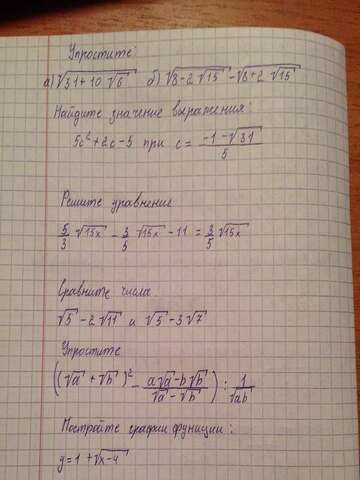 Упростите:
а) √(31+10√6) б) √(8-2√15) - √(8+2√15)
Найдите значение выражения:
5c²+2c-5 при c = (-1-√31)/5
Решите уравнение
5/3 √15x - 3/5 √15x - 11 = 3/5 √15x
Сравните числа.
√5 - 2√17 и √5 - 3√7
Упростите
((√a + √b)² - (a√a - b√b)/(√a - √b)) : 1/√ab
Постройте график функции:
y = 1 + √(x-4)